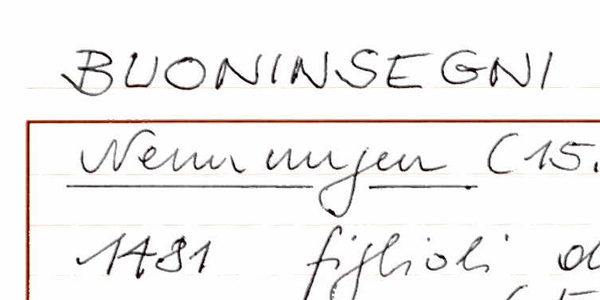 BUONINSEGNI
Nennungen (15.
1481 figlioli d